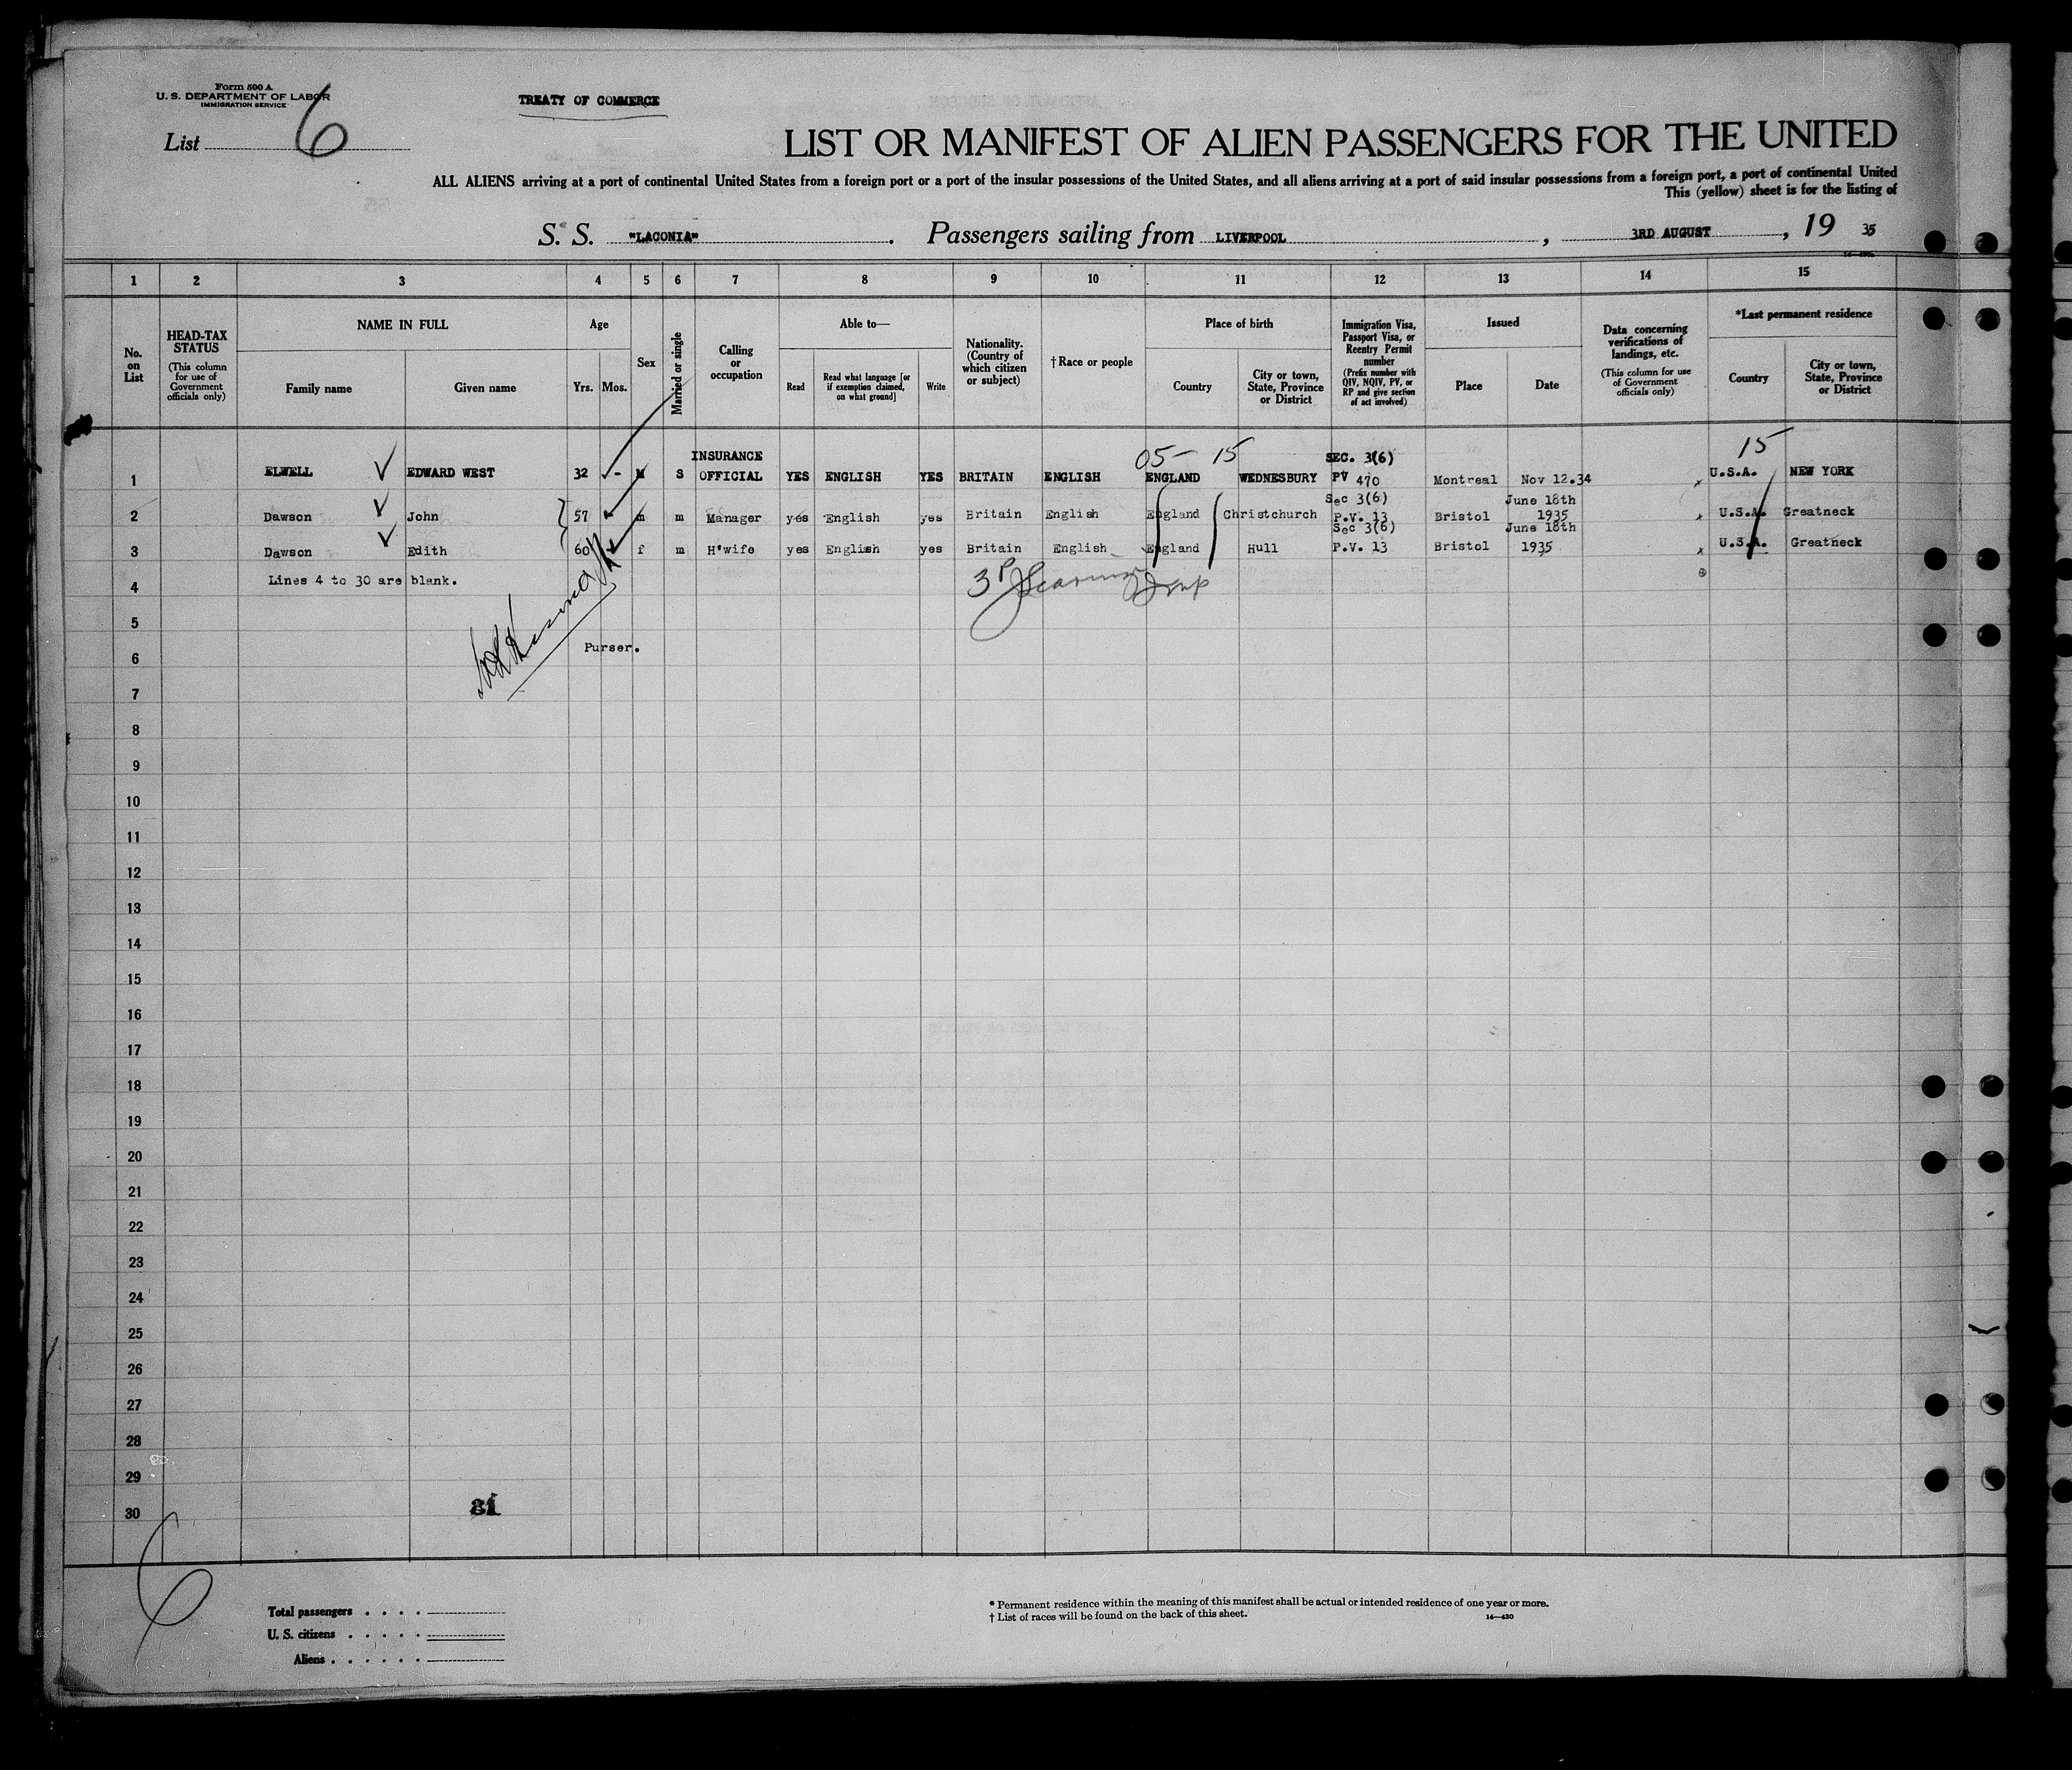 Form 500 A
U. S. DEPARTMENT OF LABOR
IMMIGRATION SERVICE
List 6
TREATY OF COMMERCE
LIST OR MANIFEST OF ALIEN PASSENGERS FOR THE UNITED
ALL ALIENS arriving at a port of continental United States from a foreign port or a port of the insular possessions of the United States, and all aliens arriving at a port of said insular possessions from a foreign port, a port of continental United
This (yellow) sheet is for the listing of
S. S. "LACONIA". Passengers sailing from LIVERPOOL, 3RD AUGUST, 19 35
1 2 3 4 5 6 7 8 9 10 11 12 13 14 15
No. on List
HEAD-TAX STATUS
(This column for use of Government officials only)
NAME IN FULL
Family name
Given name
Age
Yrs.
Mos.
Sex
Married or single
Calling or occupation
Able to—
Read
Read what language [or if exemption claimed, on what ground]
Write
Nationality. (Country of which citizen or subject)
†Race or people
Place of birth
Country
City or town, State, Province or District
Immigration Visa, Passport Visa, or Reentry Permit number
(Prefix number with QIV, NQIV, PV, or RP and give section of act involved)
Issued
Place
Date
Data concerning verifications of landings, etc.
(This column for use of Government officials only)
*Last permanent residence
Country
City or town, State, Province or District
05- 15 15
1 ELWELL EDWARD WEST 32 - M S INSURANCE OFFICIAL YES ENGLISH YES BRITAIN ENGLISH ENGLAND WEDNESBURY SEC. 3(6) PV 470 Montreal Nov 12.34 x U.S.A. NEW YORK
2 Dawson John 57 - m m Manager yes English yes Britain English England Christchurch Sec 3(6) P.V. 13 Bristol June 18th 1935 x U.S.A. Greatneck
3 Dawson Edith 60 f m H'wife yes English yes Britain English England Hull Sec 3(6) P.V. 13 Bristol June 18th 1935 x U.S.A. Greatneck
4 Lines 4 to 30 are blank.
5
6 Purser.
7
8
9
10
11
12
13
14
15
16
17
18
19
20
21
22
23
24
25
26
27
28
29
30
81
6
Total passengers . . . .
U. S. citizens . . . . .
Aliens . . . . . .
* Permanent residence within the meaning of this manifest shall be actual or intended residence of one year or more.
† List of races will be found on the back of this sheet.
14—430